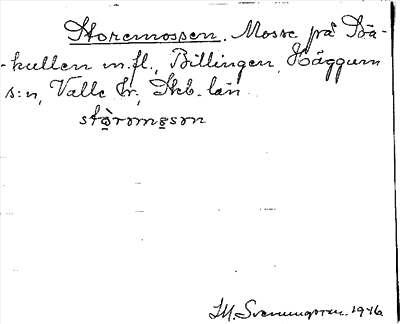 Storemossen. Mosse på Brä-
-kullen m.fl., Billingen, Häggum
s:n, Valle hr., Skb. län
stòrəmɷsən
M. Svenungsson. 1946